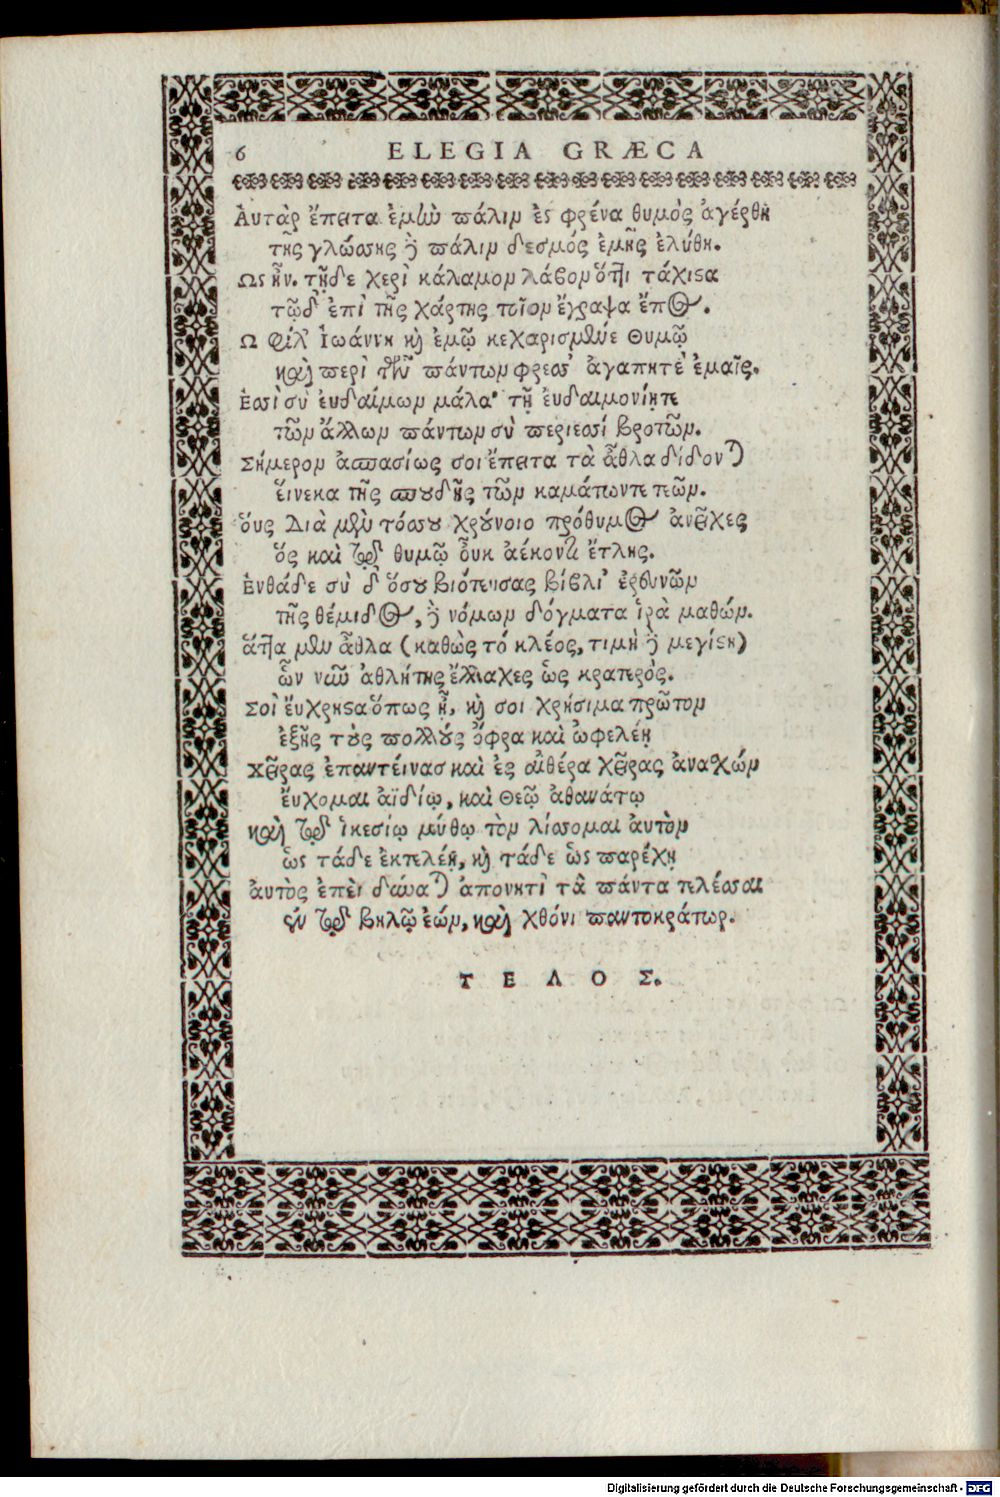 6 ELEGIA GRÆCA
Ἀυτὰρ ἔπειτα ἐμὼ πάλιν ἐς φρένα θυμὸς ἀγέρθη
τῆς γλώσσης ὁ πάλιν δεσμός ἐμῆς ἐλύθη.
Ως ἦν. τῇδε χερὶ κάλαμον λάβον ὅττι τάχιστα
τῷδ' ἐπὶ τῆς χάρτης τοῖον ἔγραψα ἔπος.
Ω φίλ' Ἰωάννη καὶ ἐμῷ κεχαρισμένε θυμῷ
καὶ περὶ τῶν πάντων φρεσ' ἀγαπητέ ἐμαῖς.
Ἐσσὶ σὺ ἐυδαίμων μάλα· τῇ ἐυδαιμονίῃ τε
τῶν ἄλλων πάντων σὺ περιεσσί βροτῶν.
Σήμερον ἀσπασίως σοι ἔπειτα τὰ ἆθλα δίδονται
εἵνεκα τῆς σπουδῆς τῶν καμάτωντε τεῶν.
ὅυς Διὰ μὲν τόσσου χρόνοιο πρόθυμος ἀνεῖχες
ὅς καὶ θυμῷ ὀυκ αέκοντι ἔτλης.
Ἐνθάδε σὺ δ' ὅσου βιότευσας βίβλι' ἐρευνῶν
τῆς θέμιδος, ὁ νόμων δόγματα ἱρὰ μαθών.
ἅττα μὲν ἆθλα (καθὼς τό κλέος, τιμὴ ὁ μεγίστη)
ὧν νῦν ἀθλήτης ἔλλαχες ὡς κρατερός.
Σοὶ ἔυχρηστα ὅπως ᾖ, καὶ σοι χρήσιμα πρῶτον
ἐξῆς τοὺς πολλούς ὄφρα καὶ ὠφελέῃ
χεῖρας ἐπαντείνας καὶ ἐς αἰθέρα χεῖρας ἀνασχών
ἔυχομαι ἀϊδίῳ, καὶ Θεῷ ἀθανάτῳ
καὶ ἱκεσίῳ μύθῳ τὸν λίσσομαι ἀυτὸν
ὡς τάδε ἐκτελέῃ, καὶ τάδε ὡς παρέχῃ
ἀυτὸς ἐπεὶ δύναται ἀπονητὶ τὰ πάντα τελέσσαι
ἐν βηλῷ ἐών, καὶ χθόνι παντοκράτωρ.
ΤΕΛΟΣ.
Digitalisierung gefördert durch die Deutsche Forschungsgemeinschaft - DFG